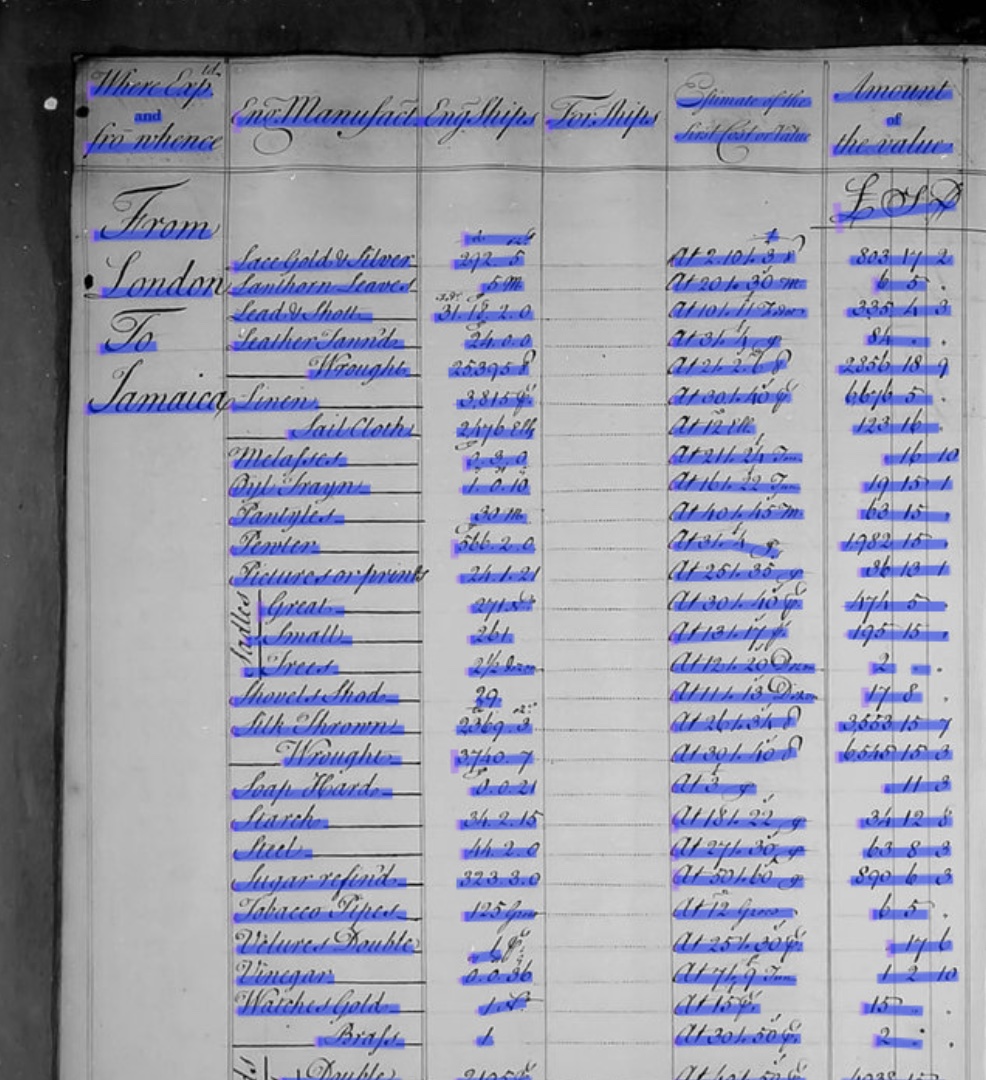 Where Exp.td and fro whence | Eng. Manufact | Eng Ships | For. Ships | Estimate of the first Cost or Value | Amount of the value
From London To Jamaica
£ S D
Lace Gold & Silver 292.5 803 17 2
Lanthorn Leaves 5 m At 20/. 30 m 6 5 .
Lead & Shott 335 4 3
Leather Tann'd 24.0.0 At 3/. 4 84 . .
Wrought 25395 2856 18 9
Linen 3,815 At 30/. 40 6676 5 .
Sail Cloth 2476 Ells At 12 Ells 123 16 .
Melasses 0.3.0 16 10
Oyl Trayn 1.0.10 At 16/. 22 Tun 19 15 1
Pantyles 30 m At 40/. 45 m 63 15 .
Pewter 566.2.0 At 3/. 4 1982 15 .
Pictures or prints 24.1.21 At 25/. 35 36 13 1
Sadles
Great 271 At 30/. 40 474 5 .
Small 261 At 13/. 17 195 15 .
Trees 2½ dozen At 12/. 20 Dozen 2 . .
Shovels Shod 29 At 11/. 13 Dozen 17 8 .
Silk Thrown 2369.3 At 26/. 34 3,553 15 7
Wrought 3740.7 At 30/. 40 6545 15 3
Soap Hard 0.0.21 At 3 11 3
Starch 34.2.15 At 18/. 22 34 12 8
Steel 44.2.0 At 27/. 30 63 8 3
Sugar refin'd 323.3.0 At 50/. 60 890 6 3
Tobacco Pipes 125 Gros At 12 Gross 6 5 .
Vitures Double At 25/. 30 17 6
Vinegar 0.0.36 At 7/. 9 Tun 1 2 10
Watches Gold 1 At 15 15 . .
Brass 1 At 30/. 50 2 . .
Double